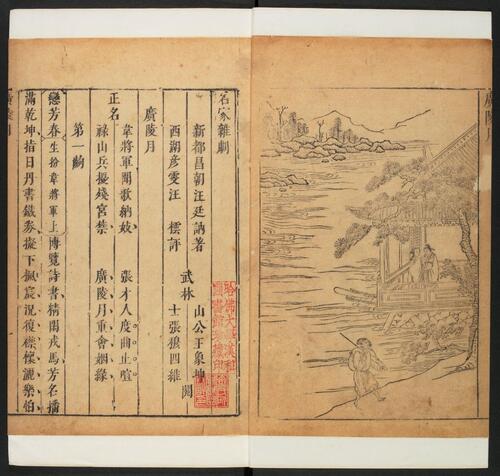 廣陵月
名家雜劇
新都昌朝汪廷訥著
武林 山公王象坤
西湖彥雯汪 㯋評
士張狼四維 閱
廣陵月
正名
韋將軍聞歌納妓
張才人度曲止喧
祿山兵擾殘宮禁
廣陵月重會姻緣
第一齣
戀芳春生扮韋將軍上博覽詩書精閑戎馬芳名播
滿乾坤指日丹書鐵券擬下楓宸況復襟懷瀟樂伯